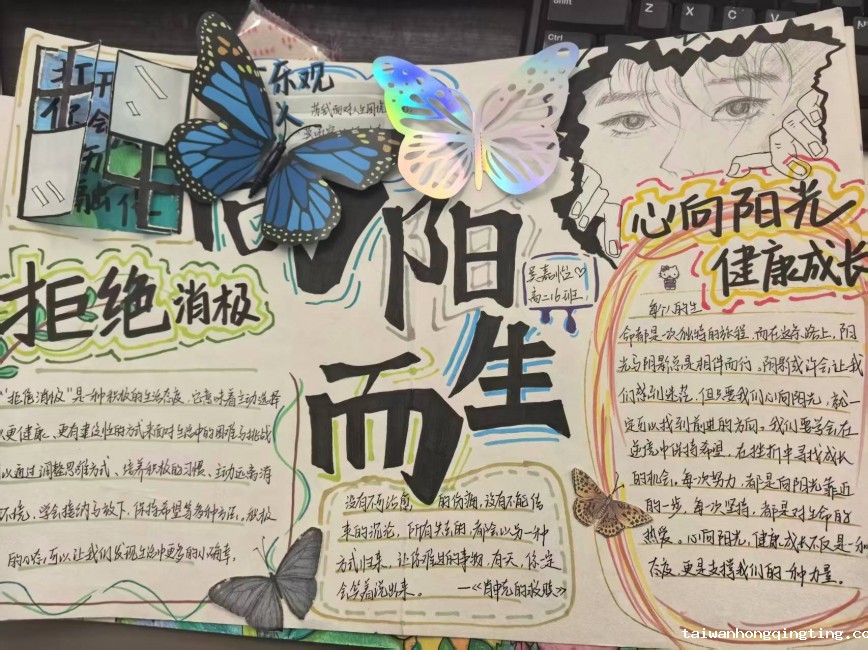 打开
你会
万
融化
乐观
阳
而
生
吴嘉
高二16班
心向阳光
健康成长
拒绝消极
每个人的生
命都是一次独特的旅程,而在这条路上,阳
光与阴影总是相伴而行,阴影或许会让我
们感到迷茫,但只要我们心向阳光,就一
定可以找到前进的方向。我们要学会在
逆境中保持希望,在挫折中寻找成长
的机会,每次努力,都是向阳光靠近
的一步,每次坚持,都是对生命的
热爱。心向阳光,健康成长不仅是一种
态度,更是支撑我们的一种力量。
"拒绝消极"是一种积极的生活态度,它意味着主动选择
更健康、更有建设性的方式来面对生活中的困难与挑战
以通过调整思维方式、培养积极的习惯、主动远离消
环境、学会接纳与放下、保持希望等多种方法,积极
的心态,可以让我们发现生活中更多的小确幸。
没有不可治愈的伤痛,没有不能结
束的沉沦,所有失去的,都会以另一种
方式归来。让你难过的事物,有天,你一定
会笑着说出来。 —《肖申克的救赎》
taiwanhongqingting.co